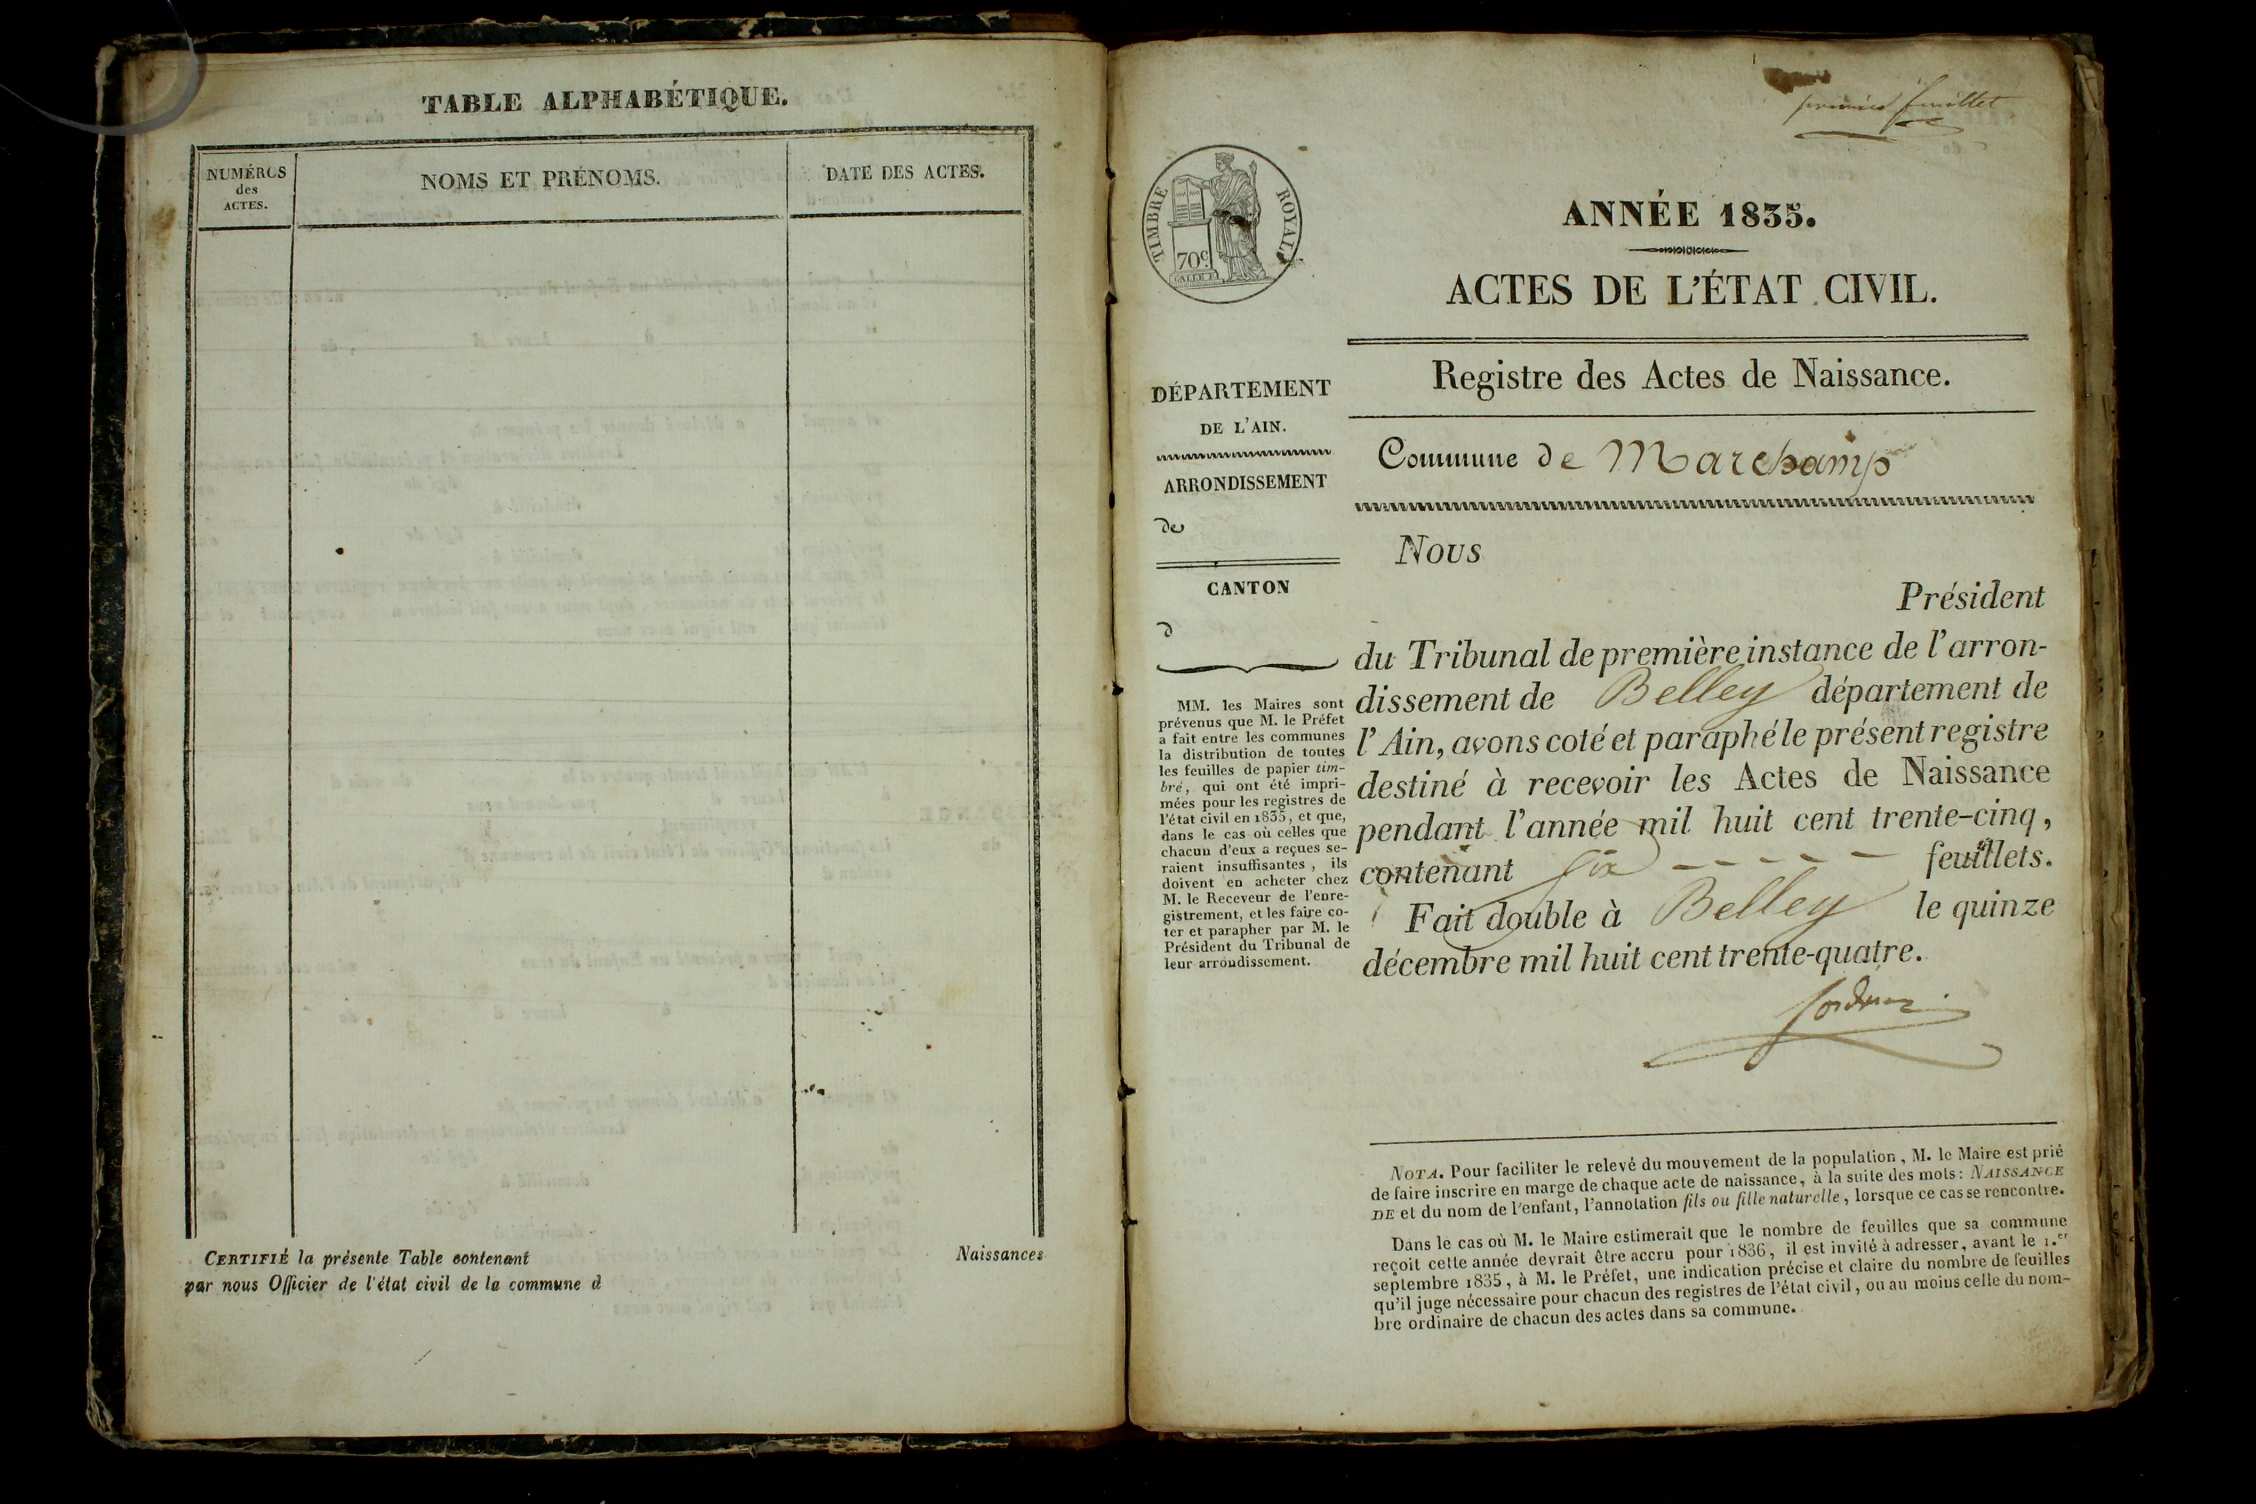 TABLE ALPHABÉTIQUE.
NUMÉROS
des
ACTES.
NOMS ET PRÉNOMS.
DATE DES ACTES.
CERTIFIÉ la présente Table contenant Naissances
par nous Officier de l'état civil de la commune d
premier feuillet
TIMBRE ROYAL
70c.
ANNÉE 1835.
ACTES DE L'ÉTAT CIVIL.
Registre des Actes de Naissance.
DÉPARTEMENT
DE L'AIN.
ARRONDISSEMENT
de
CANTON
d
MM. les Maires sont
prévenus que M. le Préfet
a fait entre les communes
la distribution de toutes
les feuilles de papier tim-
bré, qui ont été impri-
mées pour les registres de
l'état civil en 1835, et que,
dans le cas où celles que
chacun d'eux a reçues se-
raient insuffisantes, ils
doivent en acheter chez
M. le Receveur de l'enre-
gistrement, et les faire co-
ter et parapher par M. le
Président du Tribunal de
leur arrondissement.
Commune de Marchamp
Nous
Président
du Tribunal de première instance de l'arron-
dissement de Belley département de
l'Ain, avons coté et paraphé le présent registre
destiné à recevoir les Actes de Naissance
pendant l'année mil huit cent trente-cinq,
contenant six feuillets.
Fait double à Belley le quinze
décembre mil huit cent trente-quatre.
NOTA. Pour faciliter le relevé du mouvement de la population, M. le Maire est prié
de faire inscrire en marge de chaque acte de naissance, à la suite des mots: NAISSANCE
DE et du nom de l'enfant, l'annotation fils ou fille naturelle, lorsque ce cas se rencontre.
Dans le cas où M. le Maire estimerait que le nombre de feuilles que sa commune
reçoit cette année devrait être accru pour 1836, il est invité à adresser, avant le 1.er
septembre 1835, à M. le Préfet, une indication précise et claire du nombre de feuilles
qu'il juge nécessaire pour chacun des registres de l'état civil, ou au moins celle du nom-
bre ordinaire de chacun des actes dans sa commune.